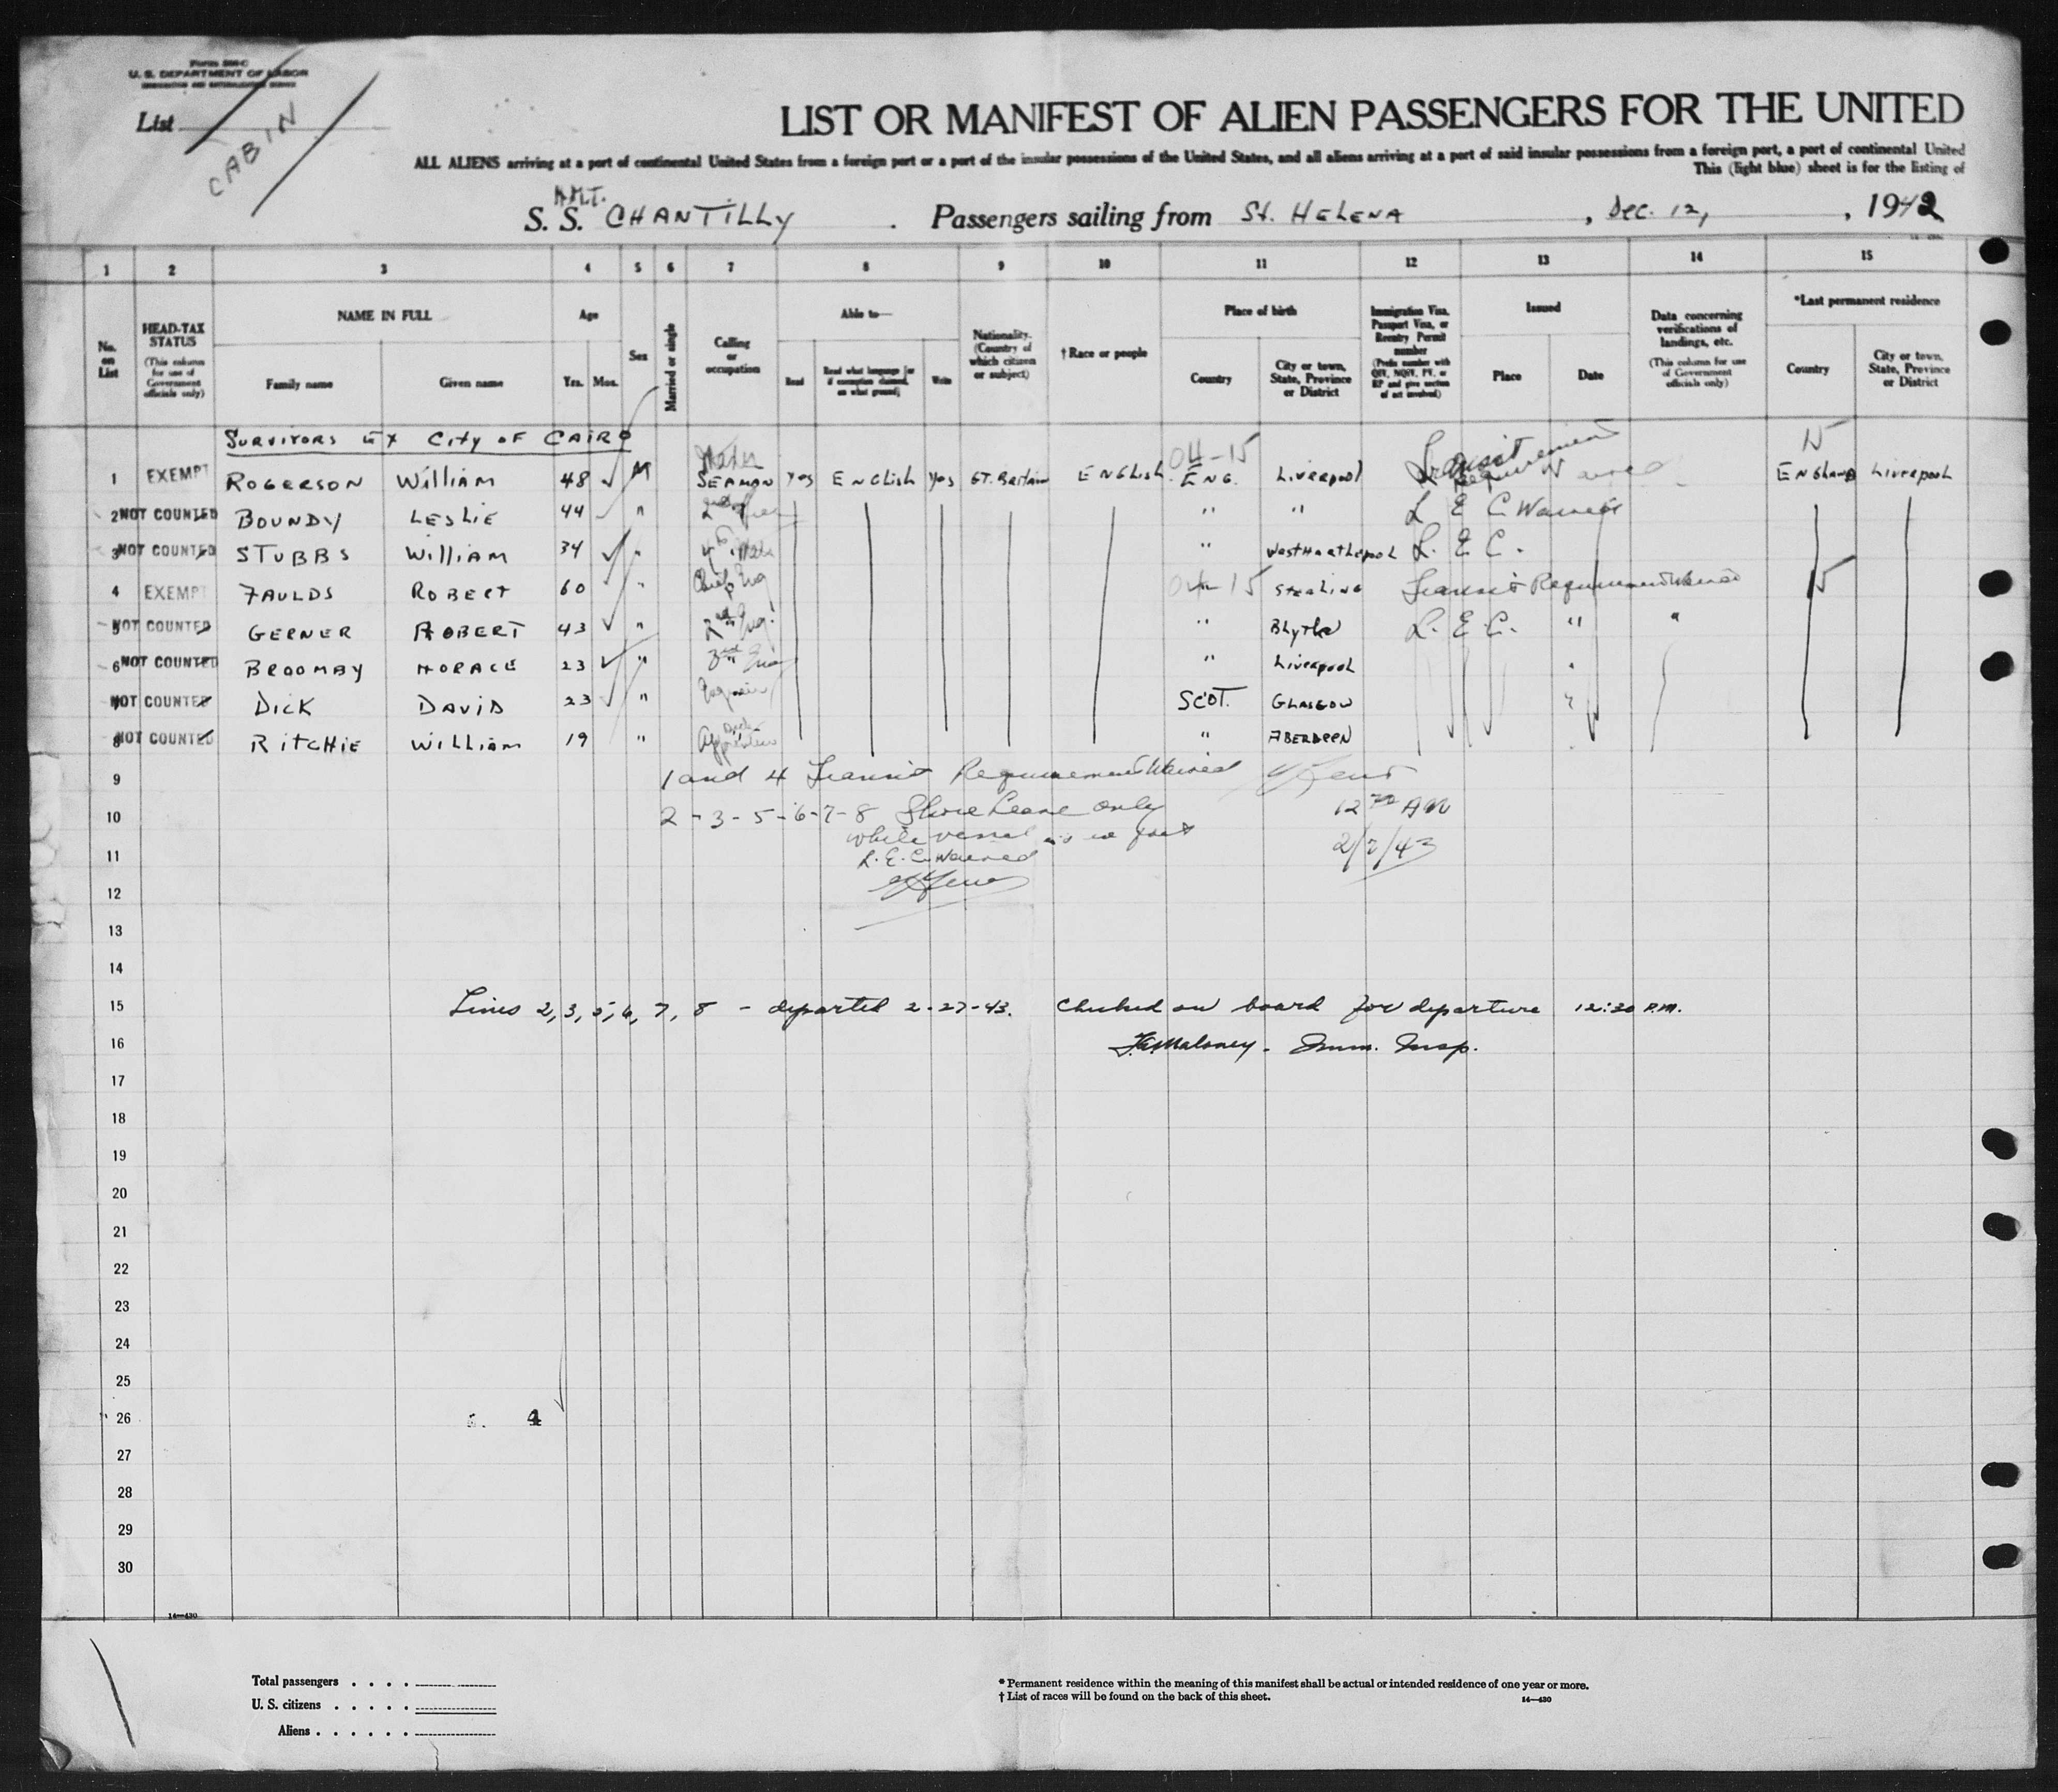 Form 500-C
U. S. DEPARTMENT OF LABOR
IMMIGRATION AND NATURALIZATION SERVICE
List
CABIN
LIST OR MANIFEST OF ALIEN PASSENGERS FOR THE UNITED
ALL ALIENS arriving at a port of continental United States from a foreign port or a port of the insular possessions of the United States, and all aliens arriving at a port of said insular possessions from a foreign port, a port of continental United
This (light blue) sheet is for the listing of
S. S. CHANTILLY . Passengers sailing from St. HELENA , Dec. 12, , 1942
1 2 3 4 5 6 7 8 9 10 11 12 13 14 15
No. on List
HEAD-TAX STATUS (This column for use of Government officials only)
NAME IN FULL
Family name Given name
Age
Yrs. Mos.
Sex
Married or single
Calling or occupation
Able to—
Read Read what language [or if exemption claimed, on what ground] Write
Nationality. (Country of which citizen or subject)
† Race or people
Place of birth
Country City or town, State, Province or District
Immigration Visa, Passport Visa, or Reentry Permit number (Prefix number with QIV, NQIV, PV, or RP and give section of act involved)
Issued
Place Date
Data concerning verifications of landings, etc. (This column for use of Government officials only)
*Last permanent residence
Country City or town, State, Province or District
SURVIVORS EX City OF CAIRO
1 EXEMPT ROGERSON William 48 M SEAMAN Yes ENGLISH Yes GT. Britain ENGLISH 04-15 ENG. Liverpool Transit Requirement Waived 15 ENGLAND Liverpool
2 NOT COUNTED BOUNDY LESLIE 44 " " " L E C Waived
3 NOT COUNTED STUBBS William 34 " 4th Mate " West Hartlepool L. E C.
4 EXEMPT FAULDS ROBERT 60 " Chief Eng 04-15 Sterling Transit Requirement Waived 15
5 NOT COUNTED GERNER ROBERT 43 " 2nd Eng. " Blythe L. E. C. " "
6 NOT COUNTED BROOMBY HORACE 23 " 3rd Eng " Liverpool
7 NOT COUNTED DICK DAVID 23 " Engineer SCOT. GLASGOW
8 NOT COUNTED RITCHIE William 19 " Apprentice " ABERDEEN
9 1 and 4 Transit Requirement Waived
10 2-3-5-6-7-8 Shore Leave only 12 AM
while vessel is in port
11 L. E. C. Waived 2/2/43
12
13
14
15 Lines 2, 3, 5, 6, 7, 8 – departed 2-27-43. Checked on board for departure 12:30 P.M.
16 Maloney - Imm. Insp.
17
18
19
20
21
22
23
24
25
26 4
27
28
29
30
14—430
Total passengers . . . .
U. S. citizens . . . . .
Aliens . . . . . .
* Permanent residence within the meaning of this manifest shall be actual or intended residence of one year or more.
† List of races will be found on the back of this sheet.
14—430